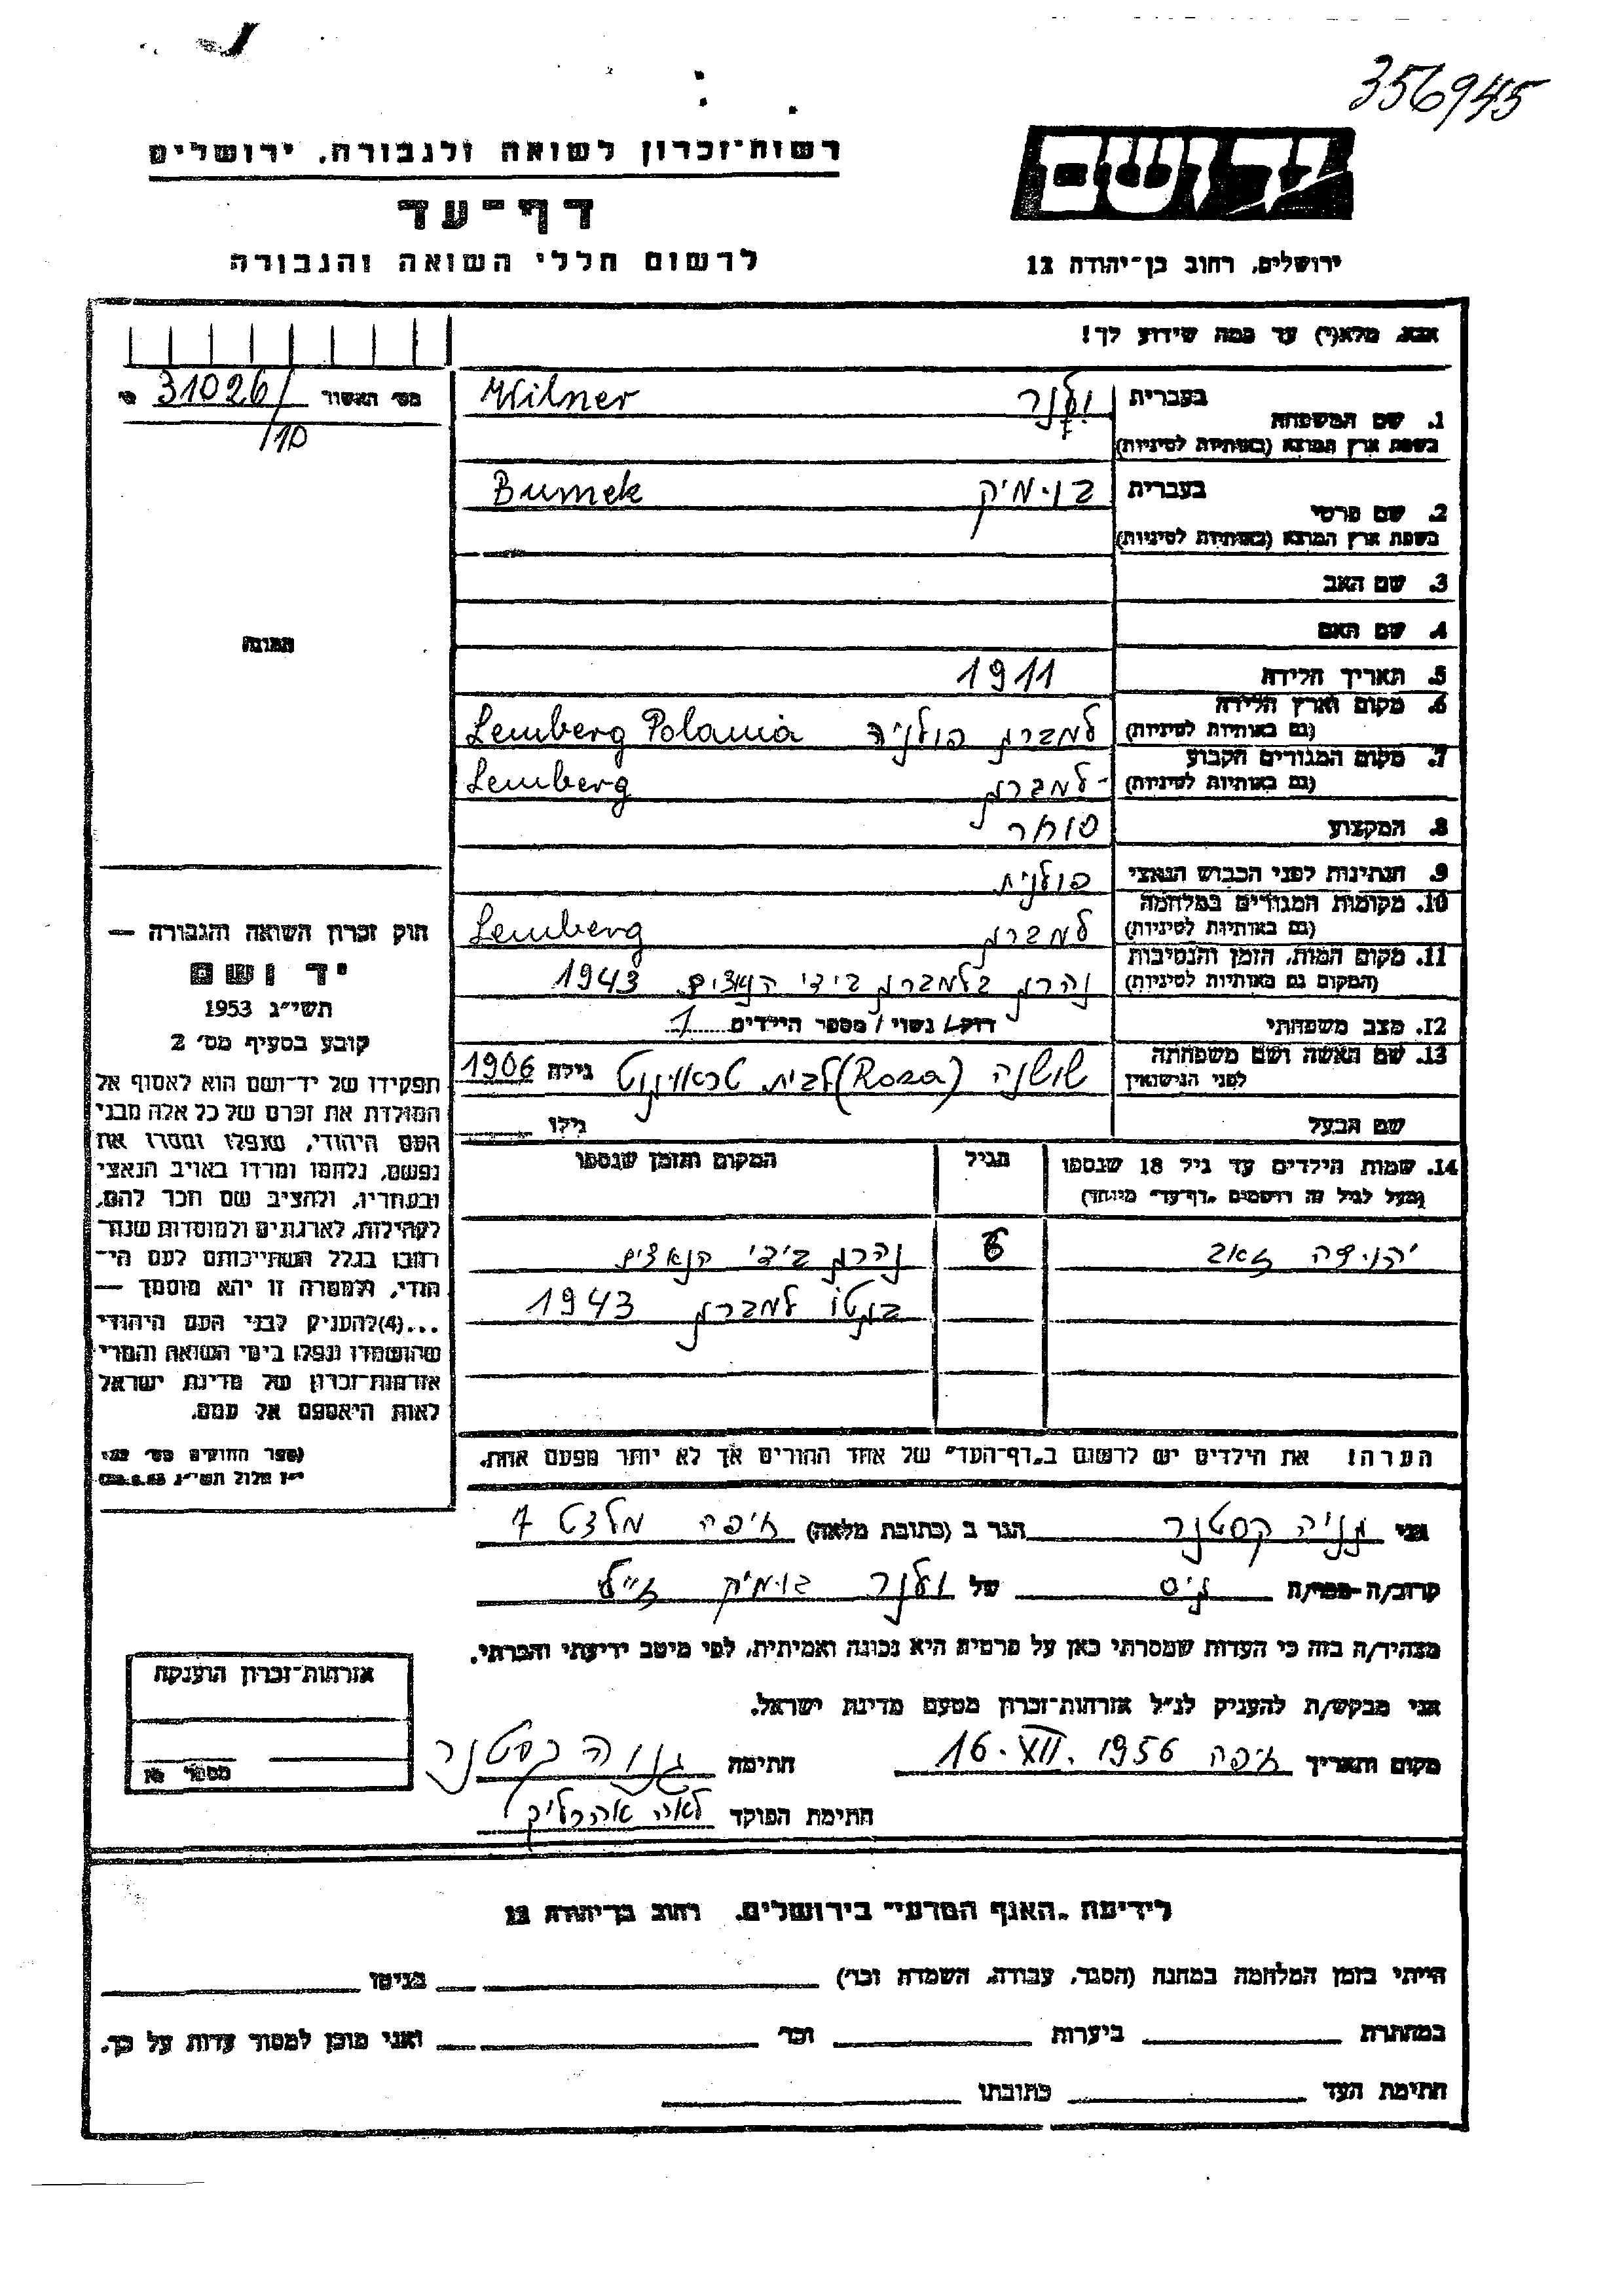 356945
רשות־זכרון לשואה ולגבורה, ירושלים
דף־עד
לרשום חללי השואה והגבורה
יד ושם
ירושלים, רחוב בן־יהודה 12
אנא, מלא(י) עד כמה שידוע לך!
מס' האשור 31026/
/10
1. שם המשפחה
בעברית ולנר Wilner
בשפת ארץ המוצא (באותיות לטיניות)
2. שם פרטי
בעברית בומיק Bumek
בשפת ארץ המוצא (באותיות לטיניות)
3. שם האב
4. שם האם
תמונה
5. תאריך הלידה 1911
6. מקום וארץ הלידה למברג פולניה Lemberg Polania
(גם באותיות לטיניות)
7. מקום המגורים הקבוע למברג Lemberg
(גם באותיות לטיניות)
8. המקצוע סוחר
9. הנתינות לפני הכבוש הנאצי פולנית
10. מקומות המגורים במלחמה למברג Lemberg
(גם באותיות לטיניות)
11. מקום המות, הזמן והנסיבות נהרג בלמברג בידי הנאצים 1943
(המקום גם באותיות לטיניות)
12. מצב משפחתי רווק/ נשוי/ מספר הילדים 1
13. שם האשה ושם משפחתה שושנה (Rosa) לבית גילה 1906
לפני הנישואין
שם הבעל גילו
14. שמות הילדים עד גיל 18 שנספו הגיל המקום והזמן שנספו
(מעל לגיל זה רושמים "דף־עד" מיוחד)
יהודה זאב נהרג בידי הנאצים
בגטו למברג 1943
הערה! את הילדים יש לרשום ב"דף־העד" של אחד ההורים אך לא יותר מפעם אחת.
חוק זכרון השואה והגבורה —
יד ושם
תשי"ג 1953
קובע בסעיף מס' 2
תפקידו של יד־ושם הוא לאסוף אל
המולדת את זכרם של כל אלה מבני
העם היהודי, שנפלו ומסרו את
נפשם, נלחמו ומרדו באויב הנאצי
ובעוזריו, ולהציב שם וזכר להם,
לקהילות, לארגונים ולמוסדות שנח־
רבו בגלל השתייכותם לעם הי־
הודי, ולמטרה זו יהא מוסמך —
...(4) להעניק לבני העם היהודי
שהושמדו ונפלו בימי השואה והמרי
אזרחות־זכרון של מדינת ישראל
לאות היאספם אל עמם.
(ספר החוקים מס' 132
י"ז אלול תשי"ג 28.8.53)
אני גניה קסטנר הגר ב (כתובת מלאה) חיפה 7
קרוב/ה-מכר/ה גיס של ולנר בומיק ז"ל
מצהיר/ה בזה כי העדות שמסרתי כאן על פרטיה היא נכונה ואמיתית, לפי מיטב ידיעתי והכרתי.
אני מבקש/ת להעניק לנ"ל אזרחות־זכרון מטעם מדינת ישראל.
מקום ותאריך חיפה 16.XII.1956 חתימה גניה קסטנר
חתימת הפוקד לאה
אזרחות־זכרון הוענקה
מספר
לידיעת "האגף המדעי" בירושלים, רחוב בן־יהודה 12
הייתי בזמן המלחמה במחנה (הסגר, עבודה, השמדה וכו') בגיטו
במחתרת ביערות וכו' ואני מוכן למסור עדות על כך.
חתימת העד כתובתו